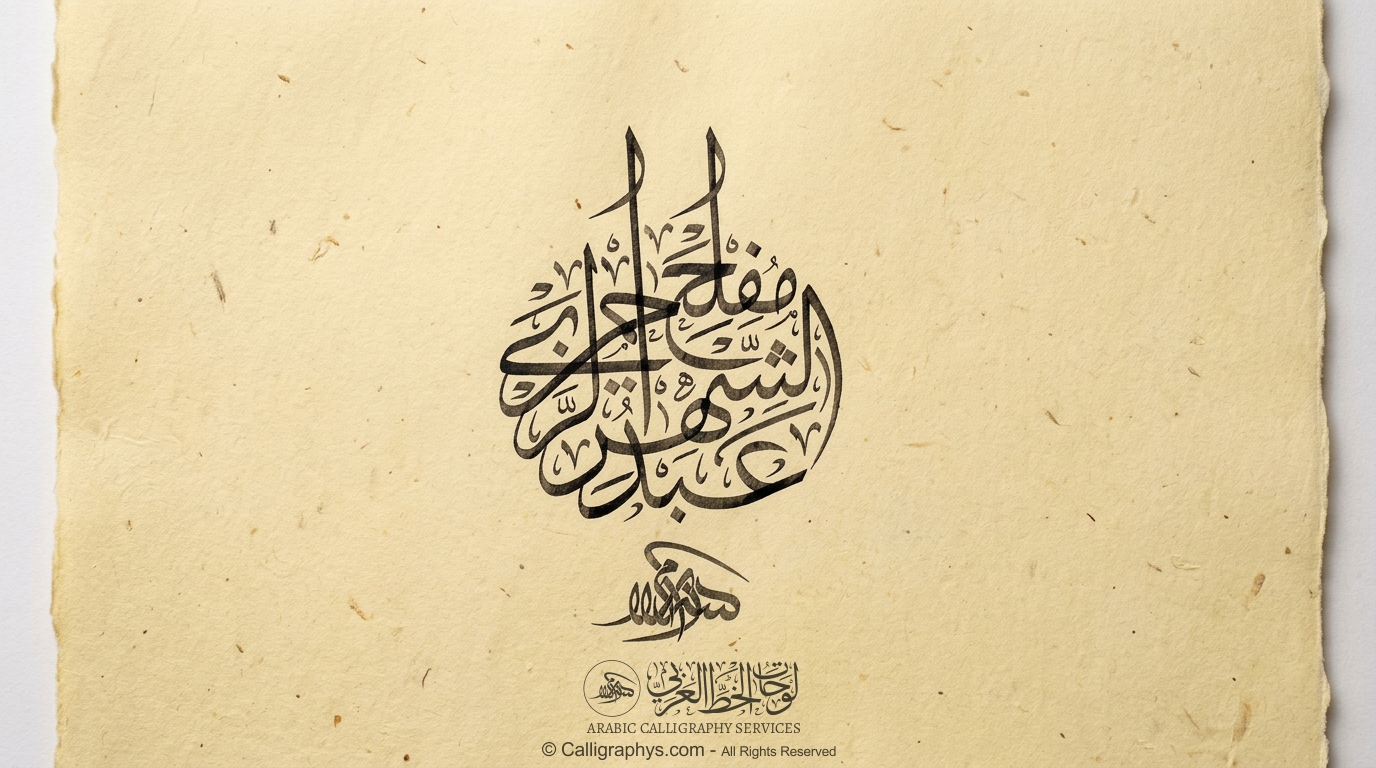 مفلح عبدالرحمن الشهراني
لوحات الخط العربي
ARABIC CALLIGRAPHY SERVICES
© Calligraphys.com - All Rights Reserved